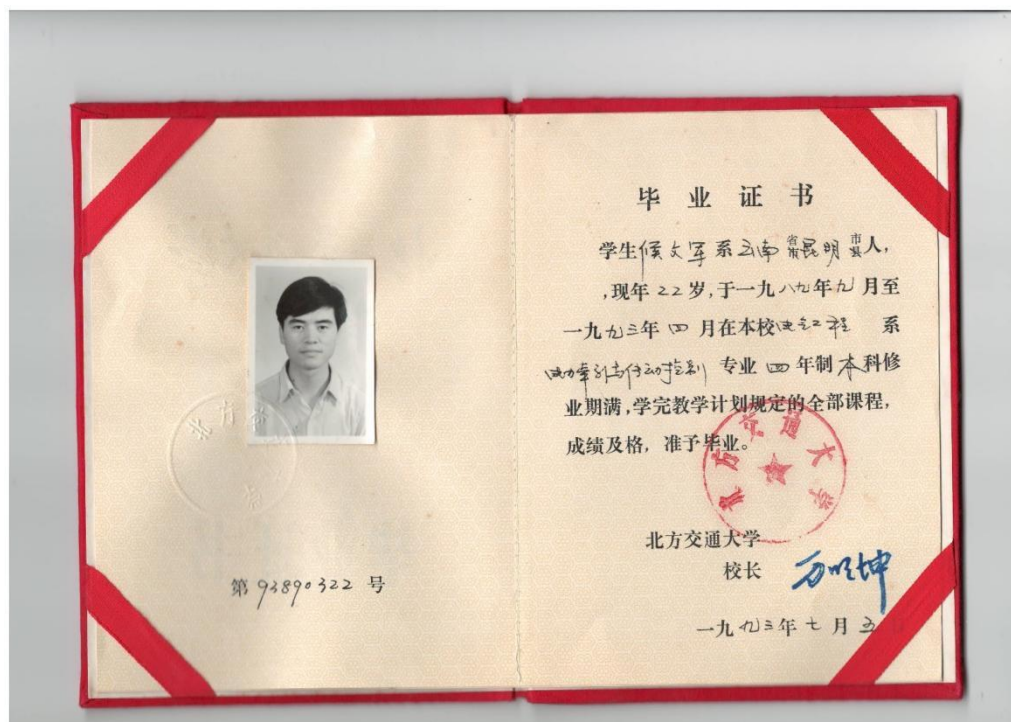 第93890322号
毕业证书
学生侯文军系云南省市昆明市县人,
,现年22岁,于一九八九年九月至
一九九三年四月在本校电气工程系
电力牵引与传动控制专业四年制本科修
业期满,学完教学计划规定的全部课程,
成绩及格，准予毕业。
北方交通大学
北方交通大学
校长 万明坤
一九九三年七月五